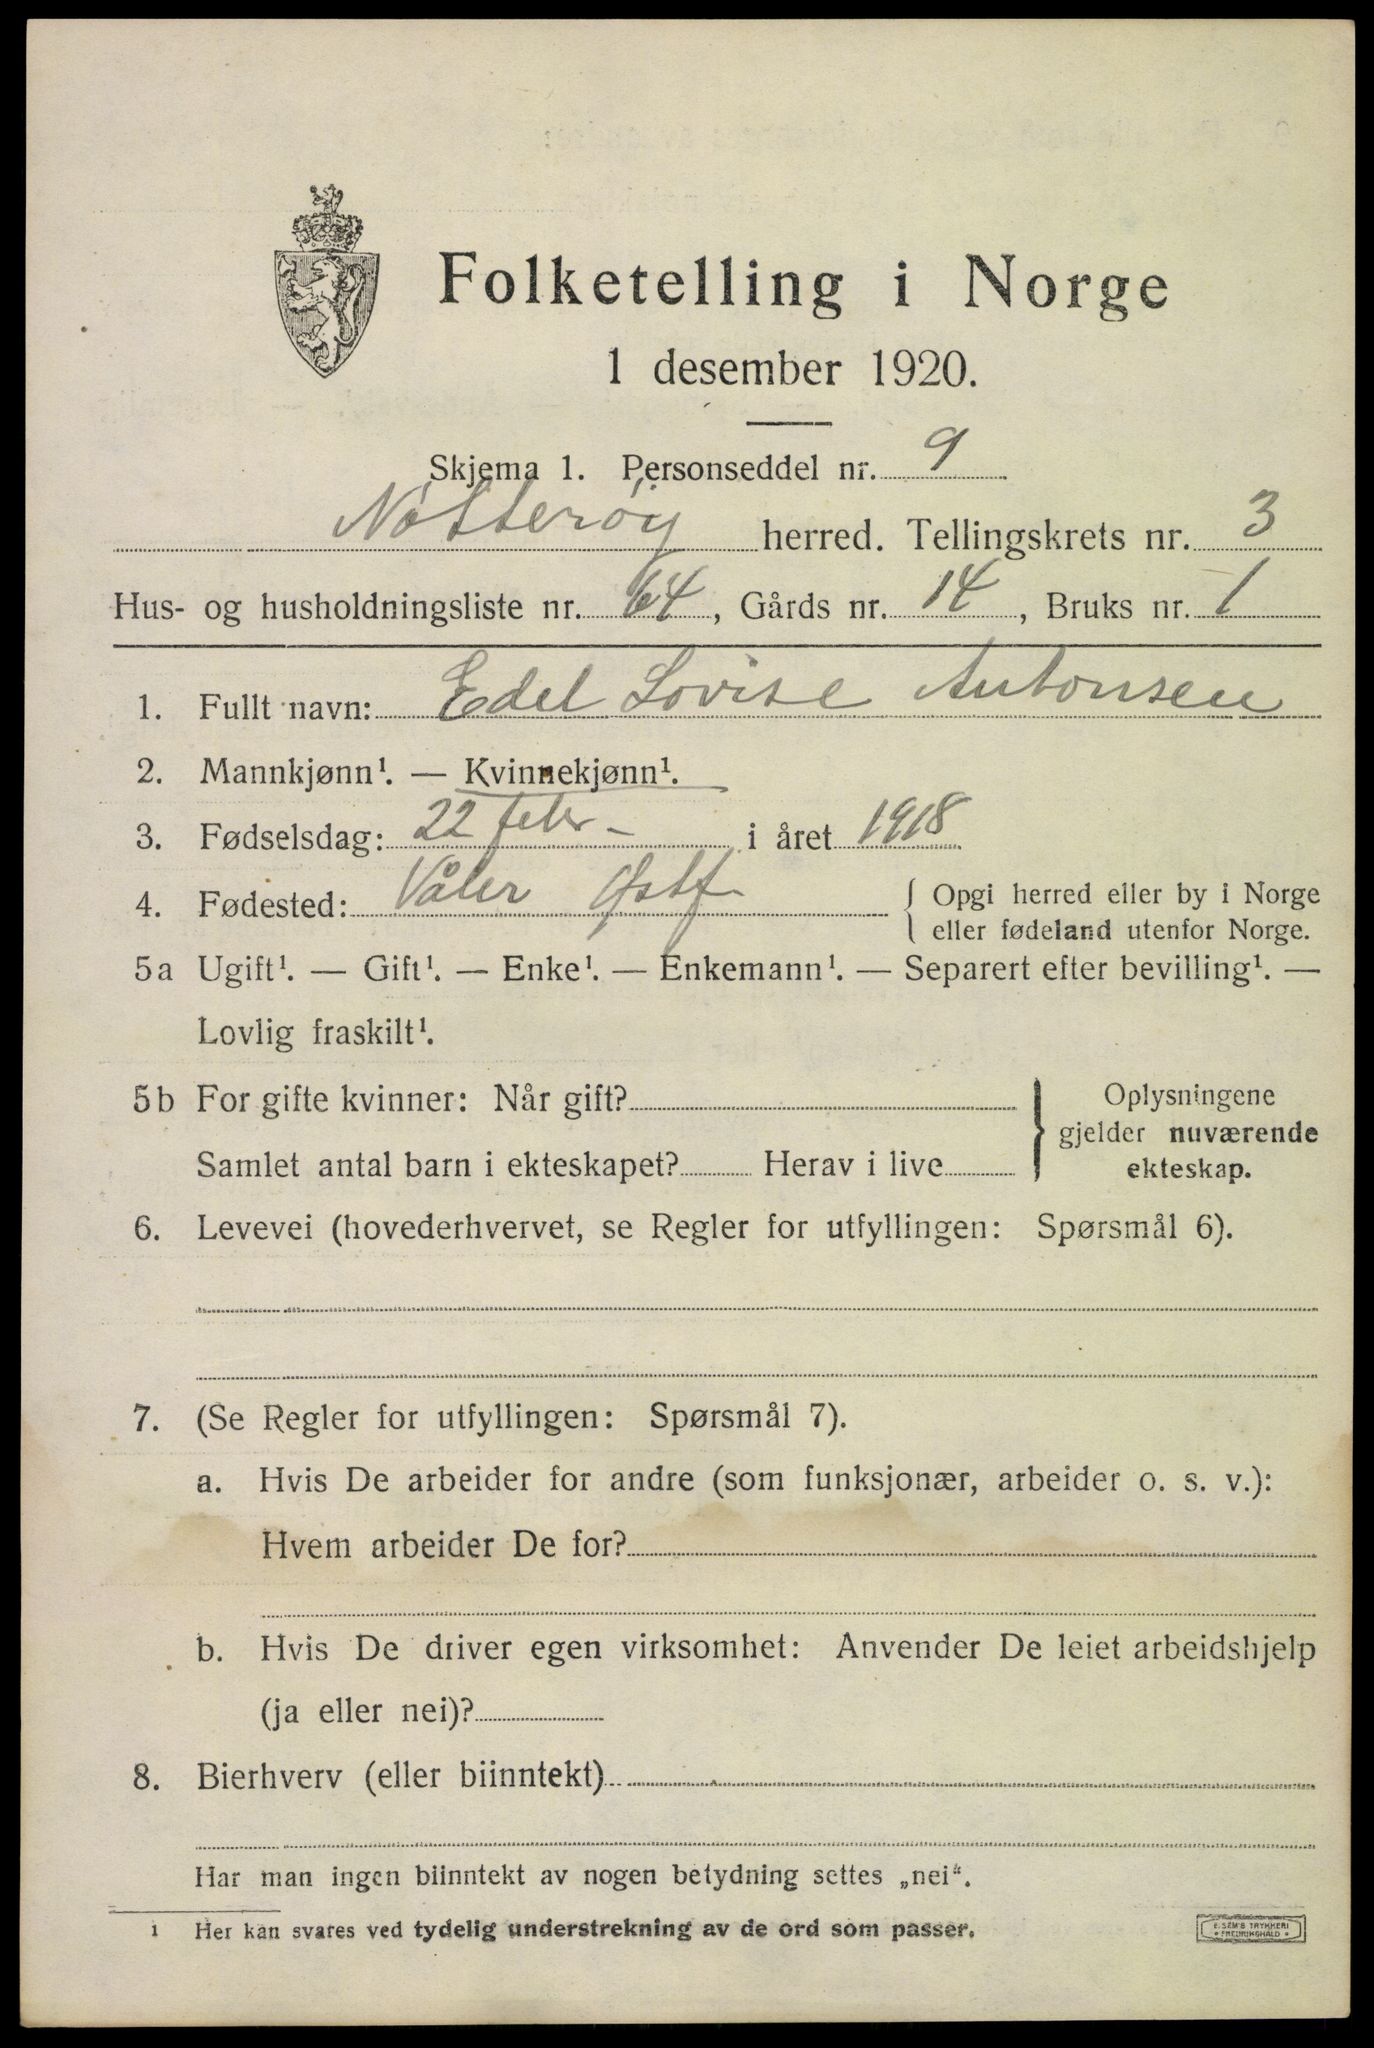 Folketelling i Norge
1 desember 1920.
Skjema 1. Personseddel nr. 9
Nøtterøy herred. Tellingskrets nr. 3
Hus- og husholdningsliste nr. 64, Gårds nr. 14, Bruks nr. 1
1. Fullt navn: Edel Lovise Antonsen
2. Mannkjønn¹. — Kvinnekjønn¹.
3. Fødselsdag: 22 febr – i året 1918
4. Fødested: Våler Østf
{ Opgi herred eller by i Norge
eller fødeland utenfor Norge.
5a Ugift¹. — Gift¹. — Enke¹. — Enkemann¹. — Separert efter bevilling¹. —
Lovlig fraskilt¹.
5b For gifte kvinner: Når gift?
Samlet antal barn i ekteskapet? Herav i live
} Oplysningene
gjelder nuværende
ekteskap.
6. Levevei (hovederhvervet, se Regler for utfyllingen: Spørsmål 6).
7. (Se Regler for utfyllingen: Spørsmål 7).
a. Hvis De arbeider for andre (som funksjonær, arbeider o. s. v.):
Hvem arbeider De for?
b. Hvis De driver egen virksomhet: Anvender De leiet arbeidshjelp
(ja eller nei)?
8. Bierhverv (eller biinntekt)
Har man ingen biinntekt av nogen betydning settes „nei“.
1 Her kan svares ved tydelig understrekning av de ord som passer.
E. SEM'S TRYKKERI
• FREDRIKSHALD •